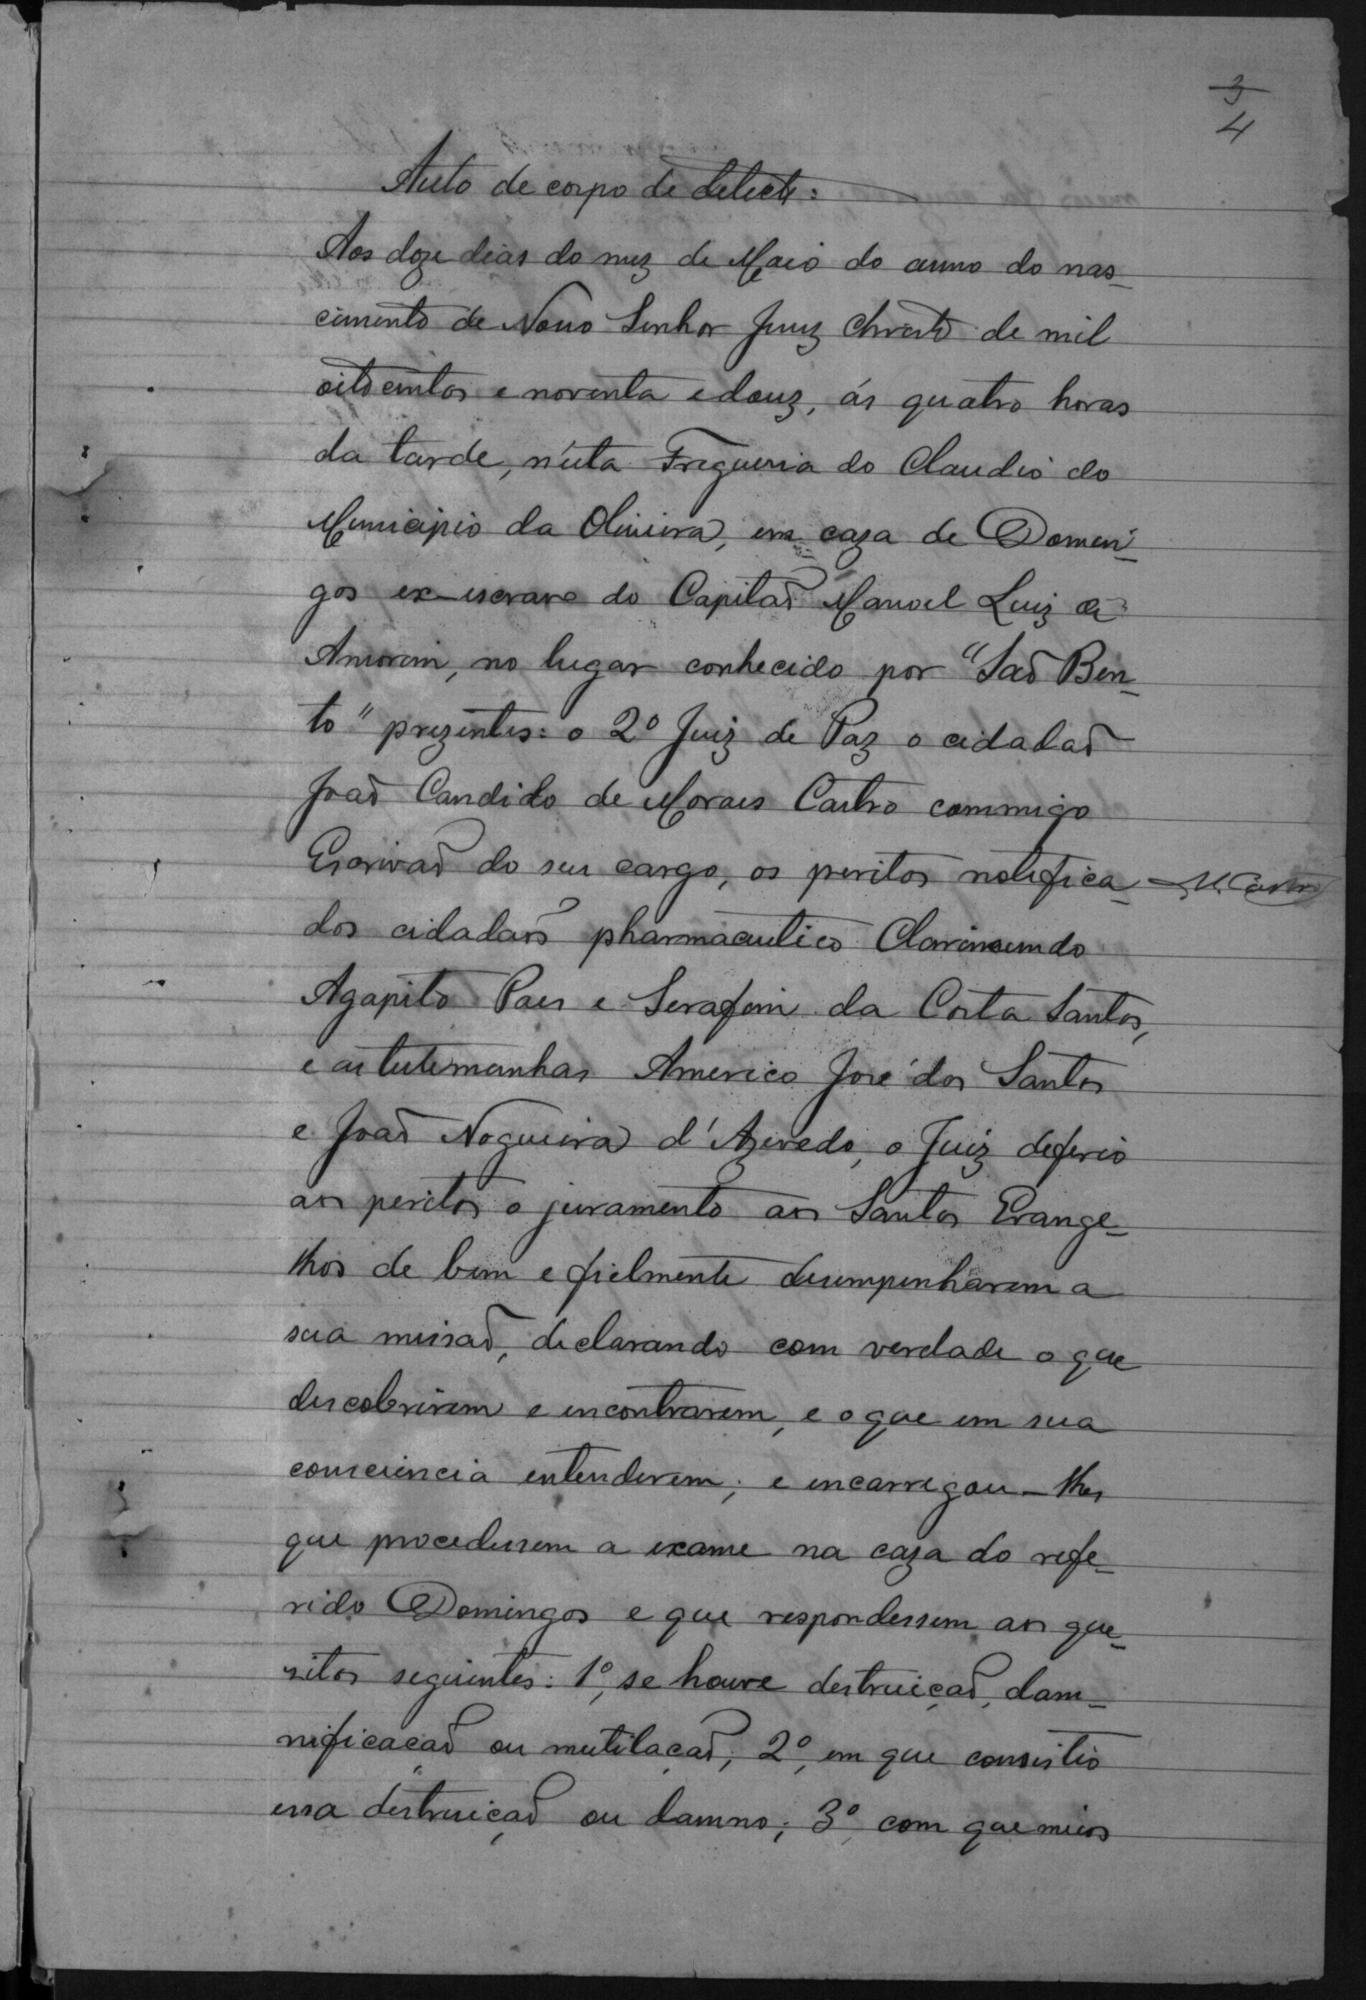 3
4
Auto de corpo de delicto:
Aos doze dias do mez de Maio do anno do nas-
cimento de Nosso Senhor Jesuz Christo de mil
oitocentos e noventa e douz, ás quatro horas
da tarde, n'esta Freguesia do Claudio do
Municipio da Oliveira, em caza de Domin-
gos ex-escravo do Capitaõ Manoel Luiz de
Amorim, no lugar conhecido por "Saõ Ben-
to" prezentes: o 2º Juiz de Paz o cidadaõ
Joaõ Candido de Moraes Castro commigo
Escrivaõ do seu cargo, os peritos notifica-
M. Castro
dos cidadaõs pharmaceutico Clarimundo
Agapito Paes e Serafim da Costa Santos,
e as testemunhas Americo José dos Santos
e Joaõ Nogueira d'Azevedo, o Juiz deferio
aos peritos o juramento aos Santos Evange-
lhos de bem e fielmente desempenharem a
sua missaõ, declarando com verdade o que
descobrirem e encontrarem, e o que em sua
consciencia entenderem; e encarregou-lhes
que procedessem a exame na caza do refe-
rido Domingos e que respondessem aos que-
sitos seguintes: 1º, se houve destruiçaõ, dam-
nificaçaõ ou mutilaçaõ; 2º, em que consistio
essa destruiçaõ ou damno; 3º, com que meios